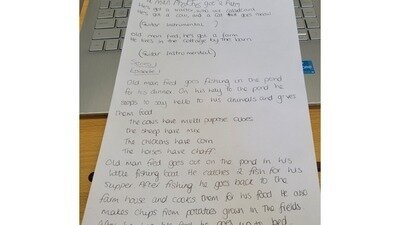 man Fred, he's got a Farm
He's got a
He's got a cow, and a cat that goes meow
(Guitar instrumental)
Old man Fred, he's got a Farm
He lives in the cottage by the barn
(Guitar Instrumental)
Series 1
Episode 1
Old man Fred goes fishing on the pond
for his dinner. On his way to the pond he
stops to say hello to his animals and gives
them food
The cows have multi purpose cubes
The sheep have mix
The chickens have corn
The horses have chaff
Old man Fred goes out on the pond in his
little fishing boat. He catches 2 fish for his
supper. After fishing he goes back to the
farm house and cooks them for his food. He also
makes chips from potatoes grown in the fields
he goes up to bed